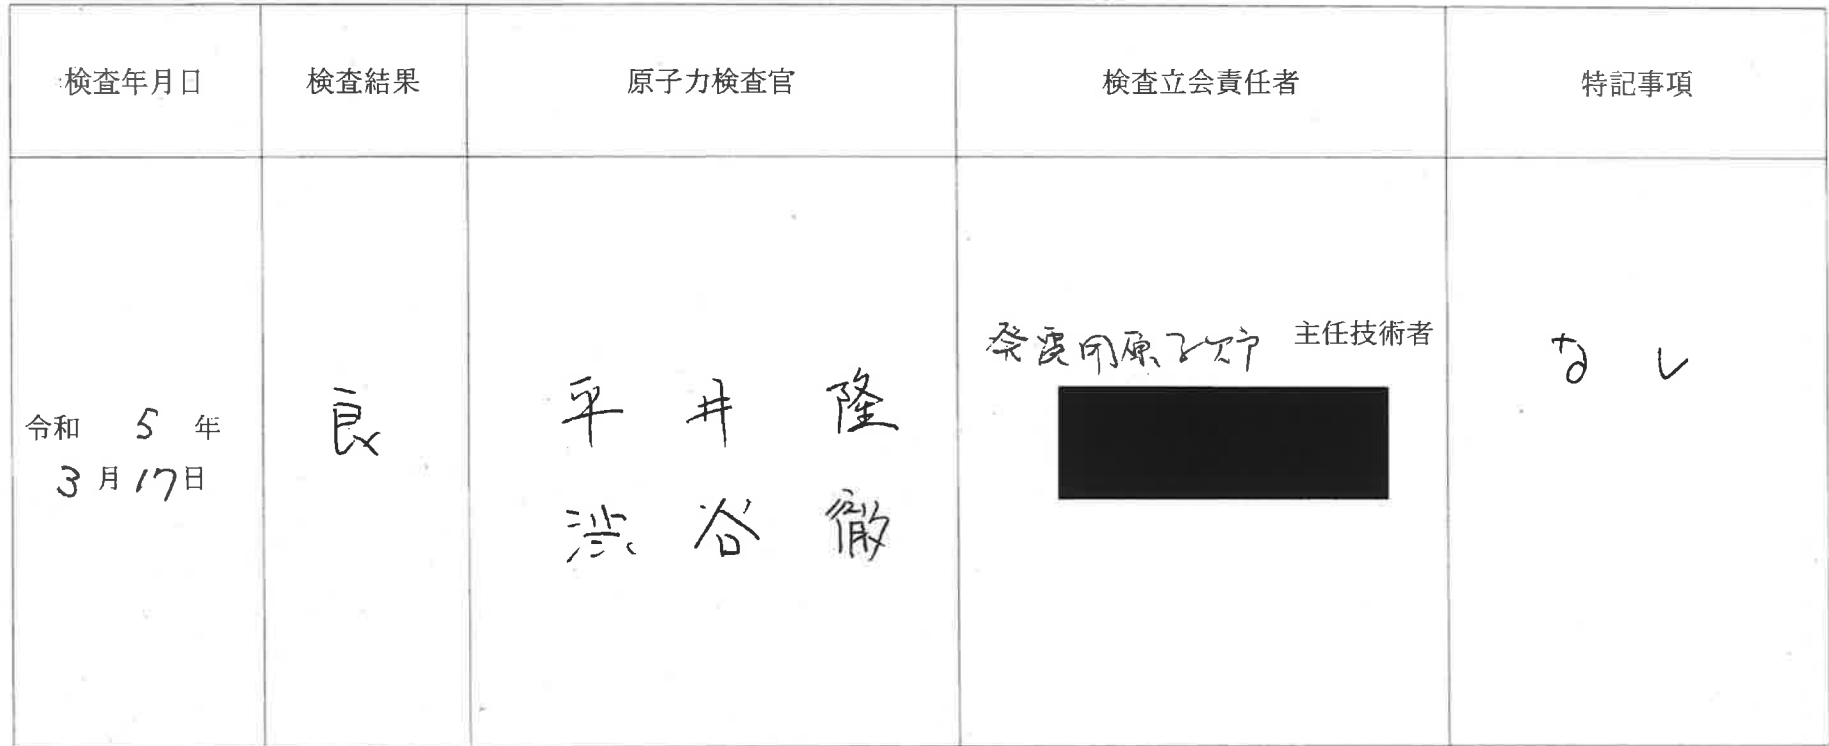 検査年月日 検査結果 原子力検査官 検査立会責任者 特記事項
令和 5 年
3 月 17 日
良
平井 隆
渋谷 徹
発電用原子炉 主任技術者
なし